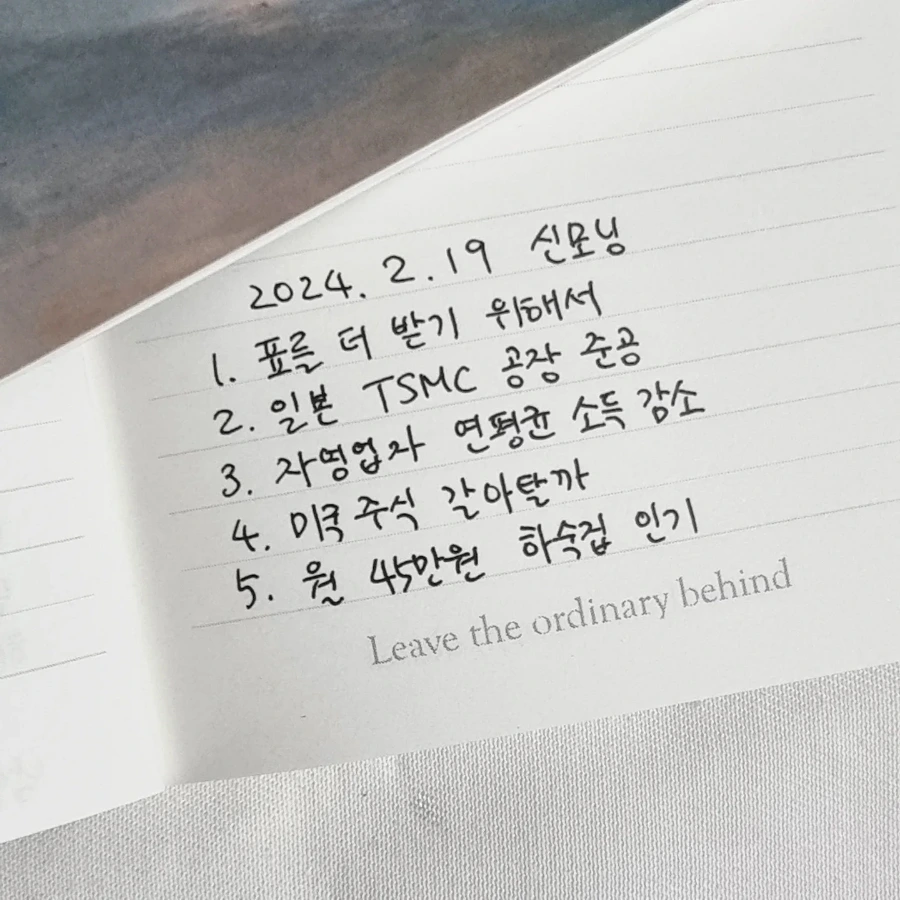 2024. 2. 19 신모닝
1. 표를 더 받기 위해서
2. 일본 TSMC 공장 준공
3. 자영업자 연평균 소득 감소
4. 미국 주식 갈아탈까
5. 월 45만원 하숙집 인기
Leave the ordinary behind